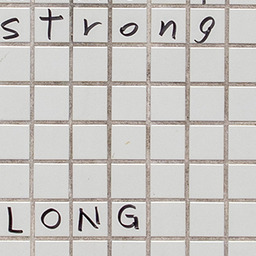 strong
LONG